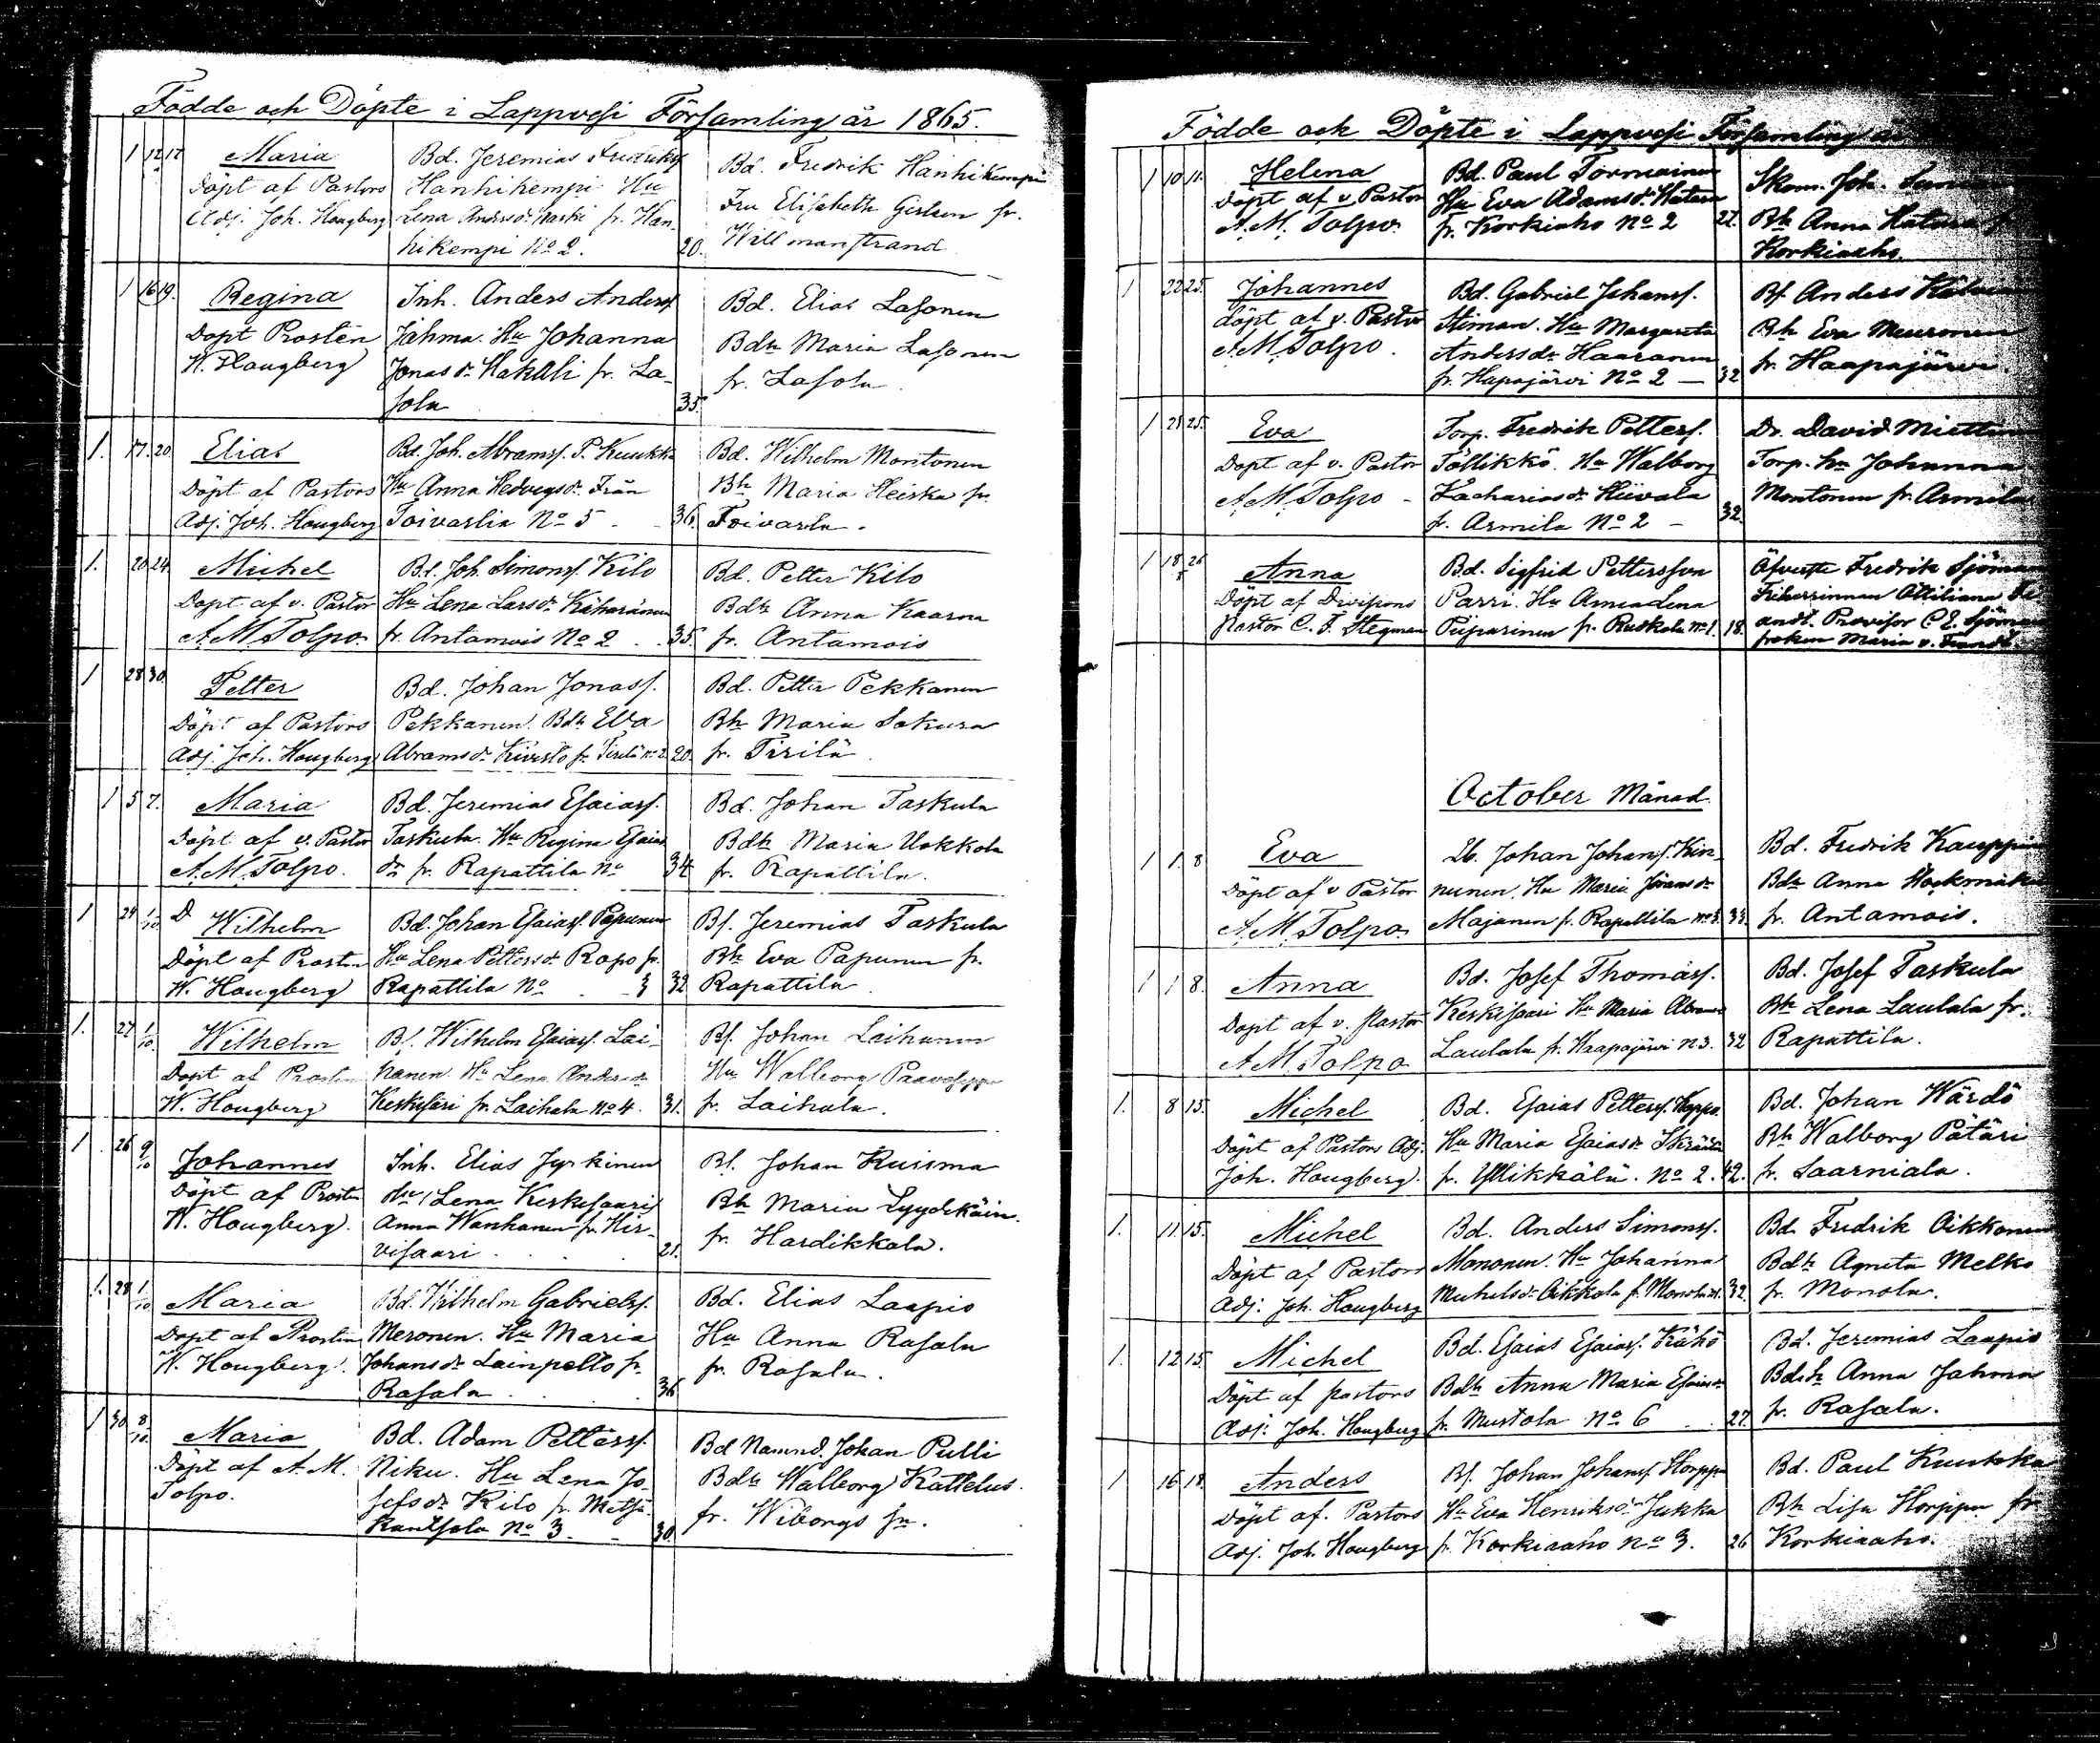 Födde och Döpte i Lappvesi Församling år 1865.
1 12 17 Maria
Döpt af Pastors
Adj. Joh. Hougberg
Bd. Jeremias Fredrikss
Hanhikempi Hu
Lena Andersdr fr. Han-
hikempi No 2. 20.
Bd. Fredrik Hanhikempi
Fru Elisabeth fr.
Willmanstrand
1 16 19. Regina
Döpt Prosten
W. Hougberg
Inh. Anders Anderss
Jähma. Hu Johanna
Jonasdr Hakali fr. La-
sola 35.
Bd. Elias Lasonen
Bdh Maria Lasonen
fr. Lasola.
1. 17. 20. Elias
Döpt af Pastors
Adj. Joh. Hougberg
Bd. Joh. Abramss. P. Kuukka
Hu Anna Hedvigsdr Från
Toivarila No 5 - 36.
Bd. Wilhelm Montonen
Bh Maria Heiska fr.
Toivarila.
1. 20 24. Michel
Döpt af v. Pastor
A. M. Tolpo.
Bd. Joh. Simonss. Kilo
Hu Lena Larsdr Kähärinen
fr. Antamois No 2 . . 35.
Bd. Petter Kilo
Bdh Anna Kaarna
fr. Antamois
1 28 30. Petter
Döpt af Pastors
Adj. Joh. Hougberg
Bd. Johan Jonass.
Pekkanen. Bdh Eva
Abramsdr Kivistö fr Tirilä No 2 20.
Bd. Petter Pekkanen
Bh Maria Sakura
fr. Tirilä.
1 5 7. Maria
Döpt af v. Pastor
A. M. Tolpo.
Bd. Jeremias Esaiass.
Taskula. Hu Regina Esaias
dr fr. Rapattila No 34
Bd. Johan Taskula
Bdh Maria Uokkola
fr. Rapattila.
1 24 1/10 D Wilhelm
Döpt af Prosten
W. Hougberg
Bd. Johan Esaiass. Papunen
Hu Lena Pettersdr Ropo fr.
Rapattila No 3 32
Bs. Jeremias Taskula
Bh Eva Papunen fr.
Rapattila.
1. 27 1/10. Wilhelm
Döpt af Prosten
W. Hougberg
Bs. Wilhelm Esaiass. Lai-
hanen. Hu Lena Andersdr
Keskisäri fr. Laihala No 4. 31.
Bs. Johan Laihanen
Hu Walborg Paavoseppä
fr. Laihala.
1 26 9/10 Johannes
Döpt af Prosten
W. Hougberg.
Inh. Elias Jyrkinen
Hu (Lena Keskisaari)
Anna Wanhanen fr. Hir-
visaari . . . 21.
Bs. Johan Kuisma
Bh Maria Lyydikäin.
fr. Hardikkala.
1. 28 1/10 Maria
Döpt af Prosten
W. Hougberg.
Bd. Wilhelm Gabrielss.
Meronen. Hu Maria
Johansdr Lainpelto fr.
Rasala . . . 36.
Bd. Elias Laapio
Hu Anna Rasala
fr. Rasala.
1 30 8/10. Maria
Döpt af A. M.
Tolpo.
Bd. Adam Petterss.
Niku. Hu Lena Jo-
sefsdr Kilo fr. Metsä-
kantsola No 3. - 30.
Bd Nämnd. Johan Pulli
Bdh Walborg Kattelus.
fr. Wiborgs sn.
Födde och Döpte i Lappvesi Församling år
1 10 11. Helena
Döpt af v. Pastor
A. M. Tolpo.
Bd. Paul Tormainen
Hu Eva Adamsdr Hatara
fr. Korkiaho No 2 22.
Skom. Joh.
Bh Anna
Korkiaho.
1 22 25. Johannes
döpt af v. Pastor
A. M. Tolpo.
Bd. Gabriel Johanss.
Stiman. Hu Margareta
Andersdr Haaranen
fr. Hapajärvi No 2 — 32
Bs. Anders
Bh Eva Meuronen
fr. Haapajärvi.
1 21 25. Eva
Döpt af v. Pastor
A. M. Tolpo -
Torp. Fredrik Petterss.
Töllikkö. Hu Walborg
Zachariasdr Hiivala
fr. Armila No 2 - 32.
Dr. David
Torp. hu Johanna
Montonen fr. Armila
1 18 26 Anna
Döpt af Divisions
Pastor C. F. Stegman
Bd. Sigfrid Pettersson
Parri. Hu Anna Lena
Piiparinen fr. Ruokola No 1. 18.
Öfverste Fredrik Sjöman
Friherrinnan Ottiliana
Provisor C. E. Sjöman
fröken Maria v.
October Månad.
1 1. 8 Eva
Döpt af v Pastor
A. M. Tolpo.
Lb. Johan Johanss. Kin-
nunen. Hu Maria Göransdr
Majanen fr. Rapattila No 3. 33.
Bd. Fredrik Kauppin
Bdh Anna
fr. Antamois.
1 1 8. Anna
Döpt af v. Pastor
A. M. Tolpo
Bd. Josef Thomass.
Keskisaari Hu Maria Abrams
Laulala fr. Haapajärvi N 3. 32
Bd. Josef Taskula
Bh Lena Laulala fr.
Rapattila.
1. 8 15. Michel
Döpt af Pastors Adj.
Joh. Hougberg.
Bd. Esaias Petterss. Hoppo.
Hu Maria Esaiasdr
fr. Yllikkälä. No 2. 42.
Bd. Johan Wärdö
Bh Walborg Pätäri
fr. Saarniala.
1. 11. 15. Michel
Döpt af Pastors
Adj: Joh. Hougberg
Bd. Anders Simonss.
Mononen. Hu Johanna
Michelsdr Oikkola fr. Monola 32.
Bd. Fredrik Oikkonen
Bdh Agneta Melko
fr. Monola.
1. 12 15. Michel
Döpt af pastors
Adj. Joh. Hougberg
Bd. Esaias Esaiass. Kähö
Bdh Anna Maria Esaiasdr
fr. Mustola No 6 . . 27.
Bd. Jeremias Laapio
Bdsh Anna Jähma
fr. Rasala.
1 16 18. Anders
Döpt af. Pastors
Adj. Joh. Hougberg
Bs. Johan Johanss. Horppu
Hu Eva Henriksdr Jukka
fr. Korkiaaho No 3. 26
Bd. Paul Kuukka
Bh Lisa Horppu fr
Korkiaaho.